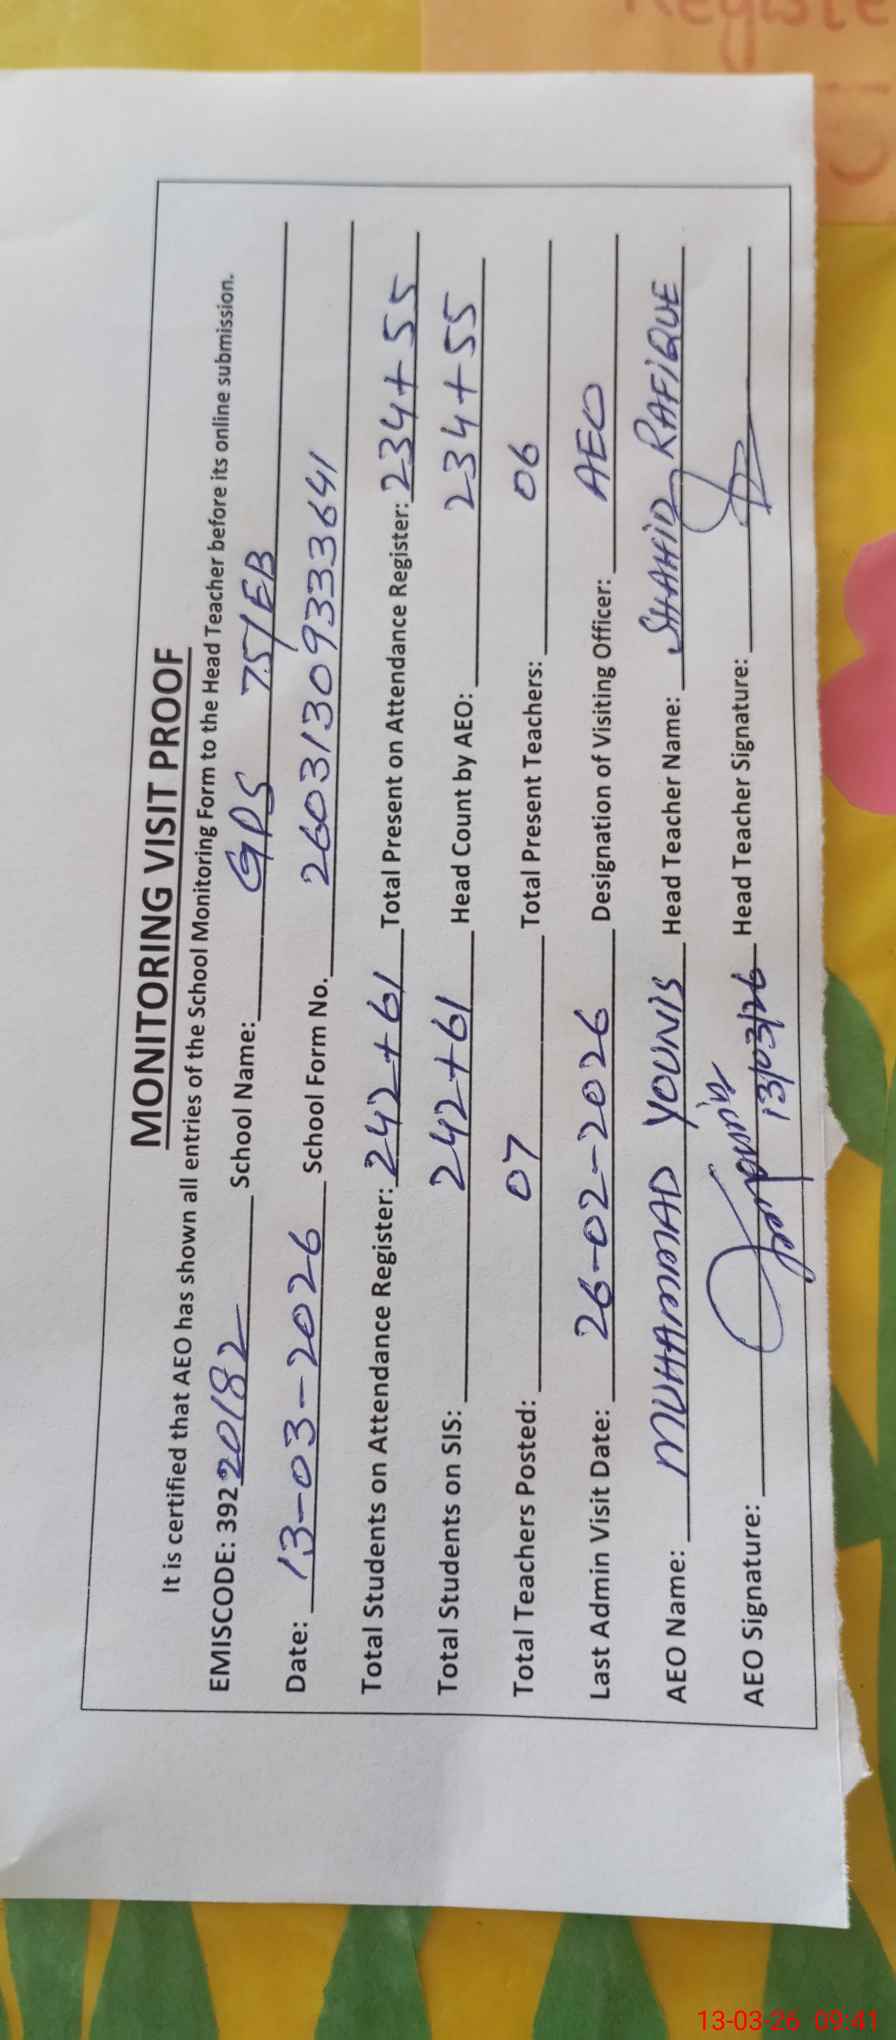 Registe
MONITORING VISIT PROOF
It is certified that AEO has shown all entries of the School Monitoring Form to the Head Teacher before its online submission.
EMISCODE: 39220182 School Name: GPS 75/EB
Date: 13-03-2026 School Form No. 26031309333641
Total Students on Attendance Register: 242+61 Total Present on Attendance Register: 234+55
Total Students on SIS: 242+61 Head Count by AEO: 234+55
Total Teachers Posted: 07 Total Present Teachers: 06
Last Admin Visit Date: 26-02-2026 Designation of Visiting Officer: AEO
AEO Name: MUHAMMAD YOUNIS Head Teacher Name: SHAHID RAFiQUE
AEO Signature: 13/03/26 Head Teacher Signature:
13-03-26 09:41